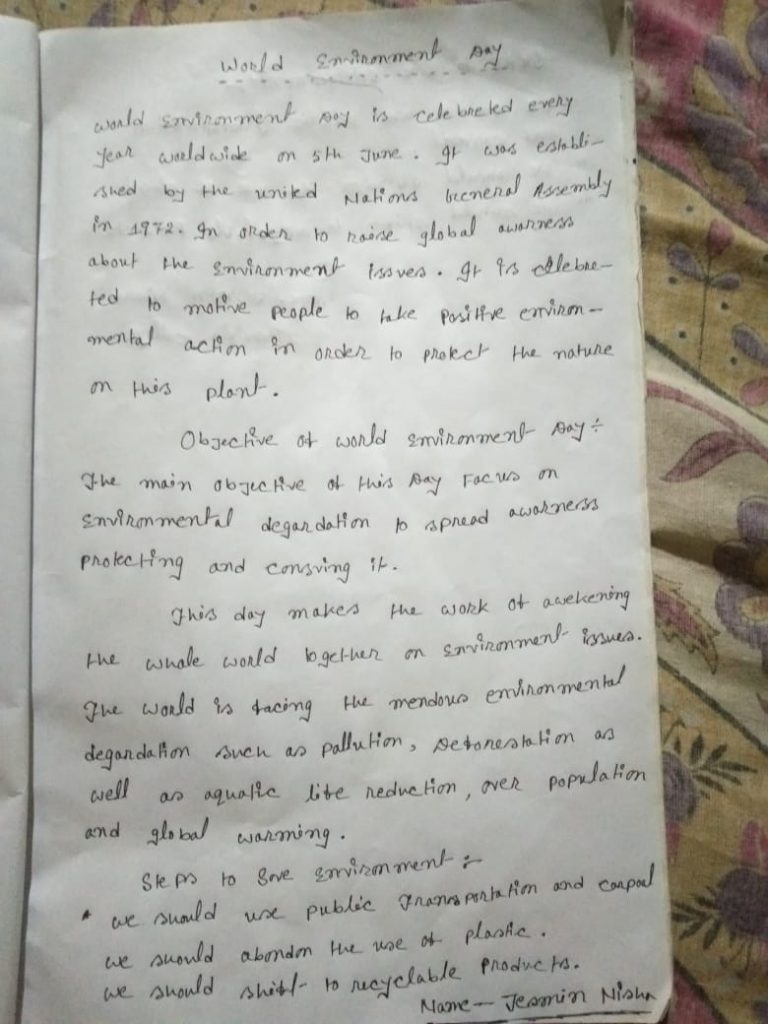 World Environment Day
World Environment Day is celebreted every
year worldwide on 5th June. It was establi-
shed by the united Nations General Assembly
in 1972. In order to raise global awarness
about the Environment issues. It is celebre-
ted to motive people to take positive environ-
mental action in order to protect the nature
on this plant.
Objective of world Environment Day ÷
The main objective of this Day Focus on
Environmental degardation to spread awarness
protecting and consving it.
This day makes the work of awekening
the whale world together on Environment issues.
The world is facing the mendous environmental
degardation such as pallution, Deforestation as
well as aquatic life reduction, over population
and global warming.
Steps to Save Environment :-
* we should use public Transportation and carpal
we should abondon the use of plastic.
we should shift to recyclable products.
Name - Jesmin Nisha